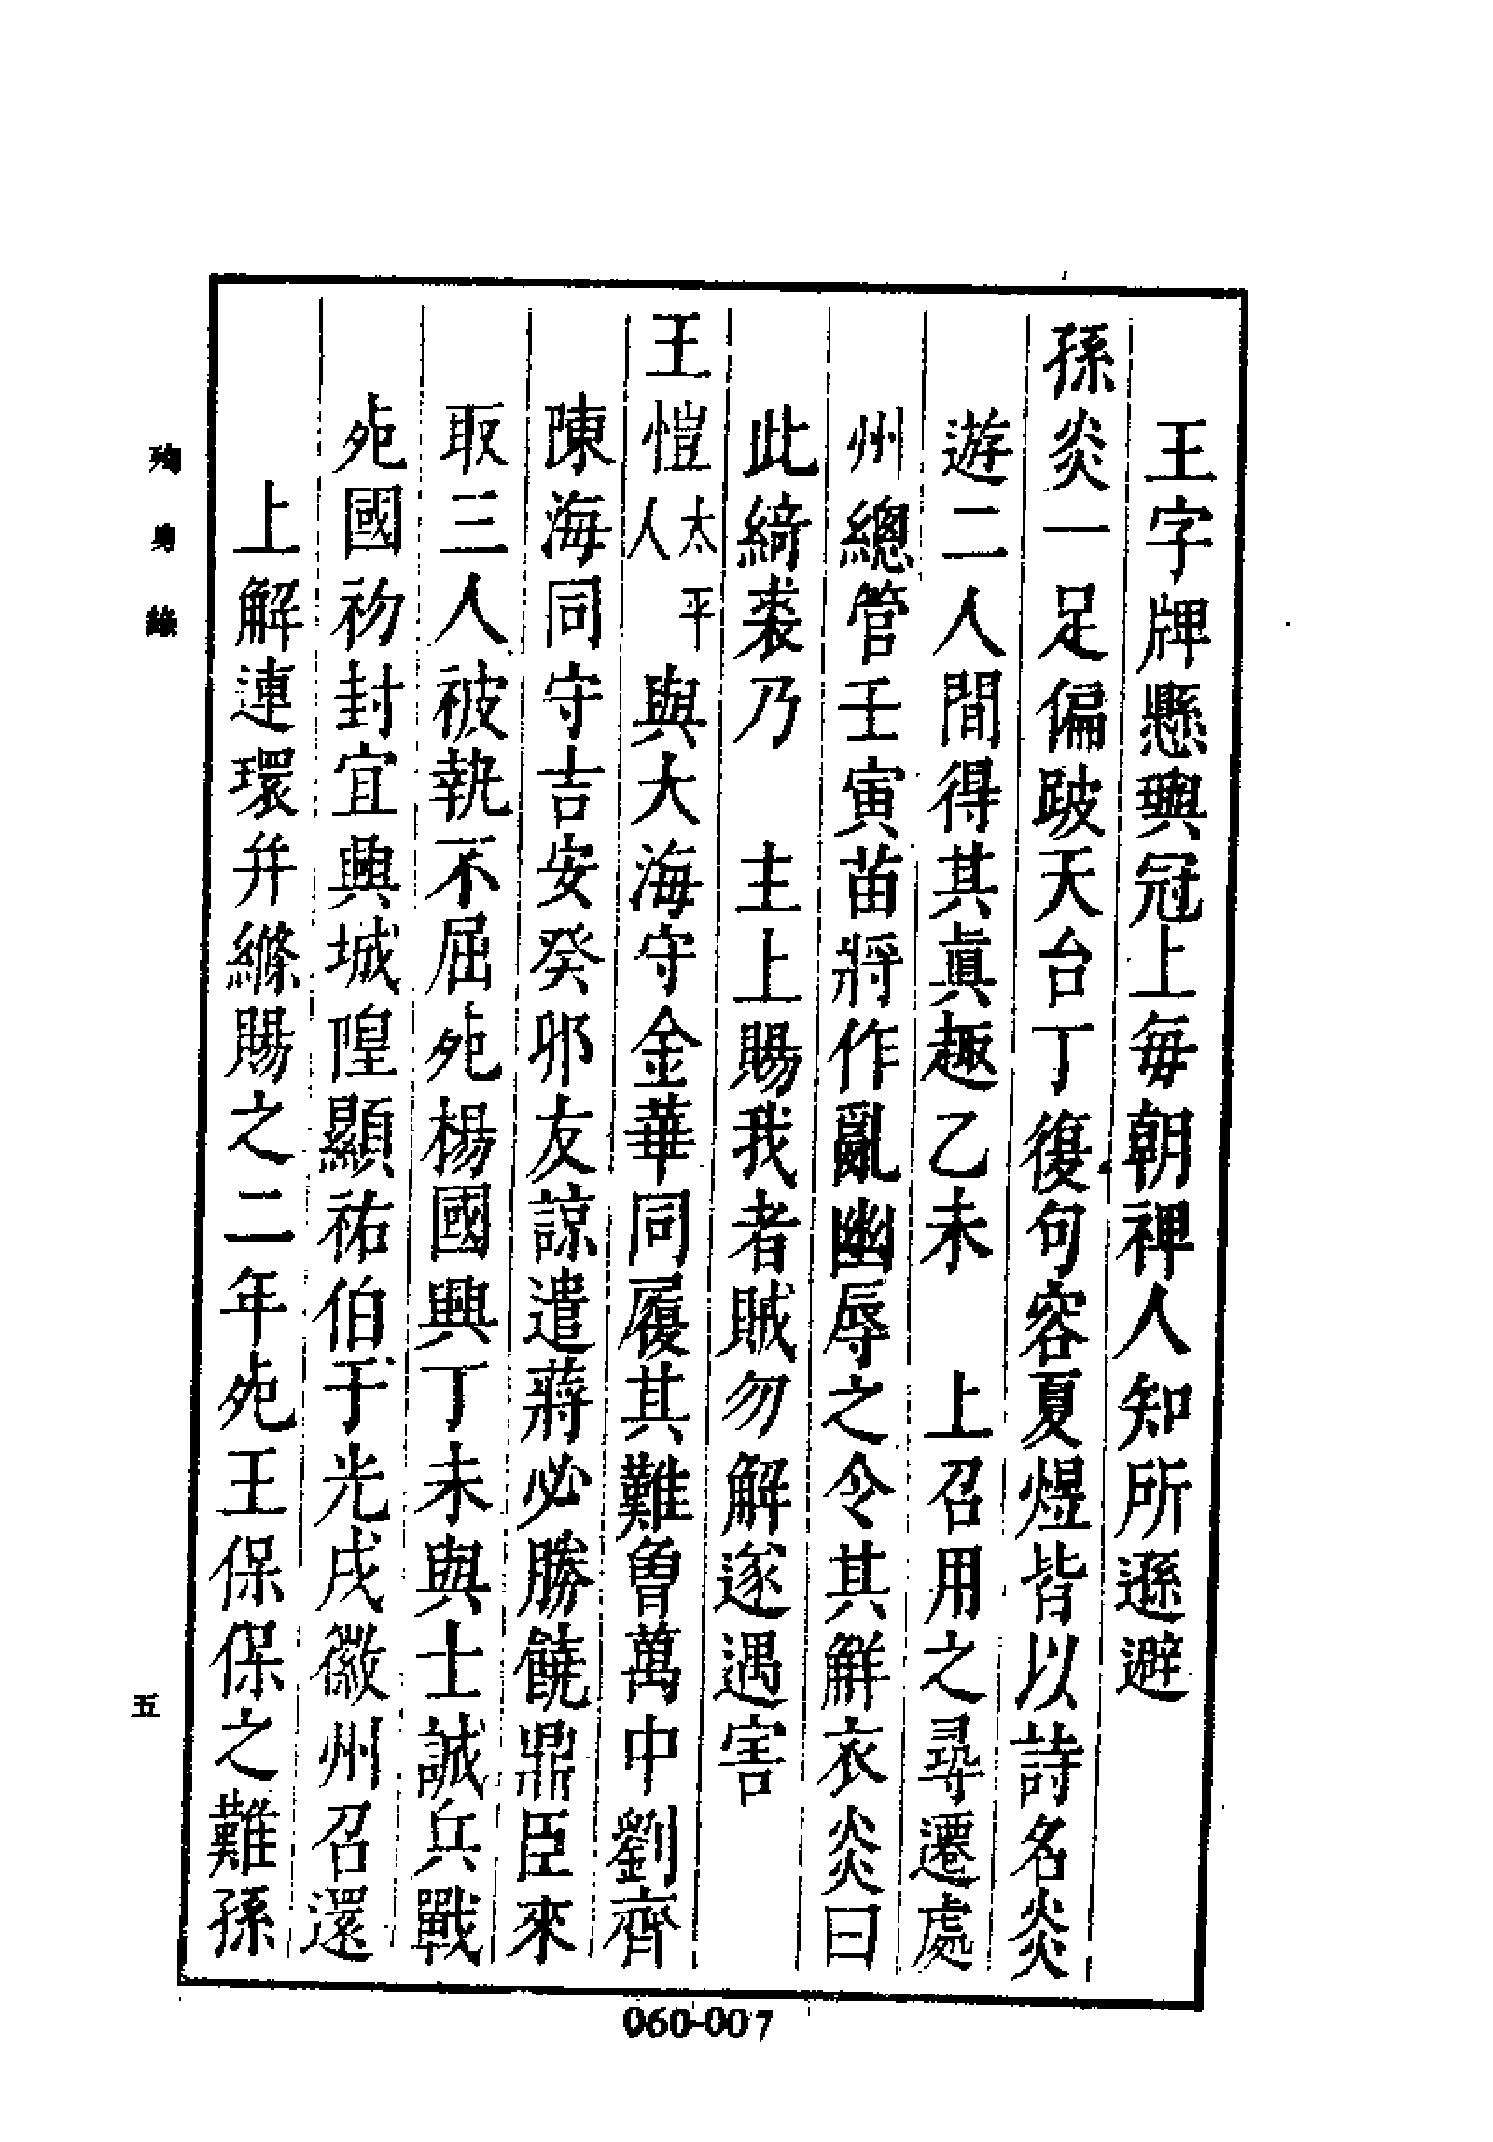 王字牌懸輿冠上每朝禆人知所遜避
孫炎一足偏跛天台丁復句容夏煜皆以詩名炎
遊二人間得其眞趣乙未　上召用之尋遷處
州總管壬寅苗將作亂幽辱之令其解衣炎曰
此綺裘乃　主上賜我者賊勿解遂遇害
王愷太平人與大海守金華同履其難曾萬中劉齊
陳海同守吉安癸卯友諒遣蔣必勝饒鼎臣來
取三人被執不屈死楊國興丁未與士誠兵戰
死國初封宜興城隍顯祐伯于光戍徽州召還
上解連環并縧賜之二年死王保保之難孫
殉身錄
五
060-007